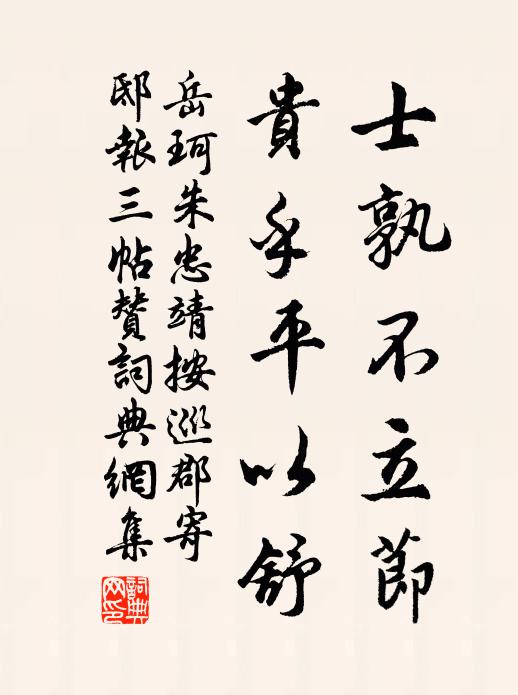 士孰不立節
貴乎平以舒
岳珂朱忠靖按巡郡寄
邸報三帖贊詞典網集
詞典網印